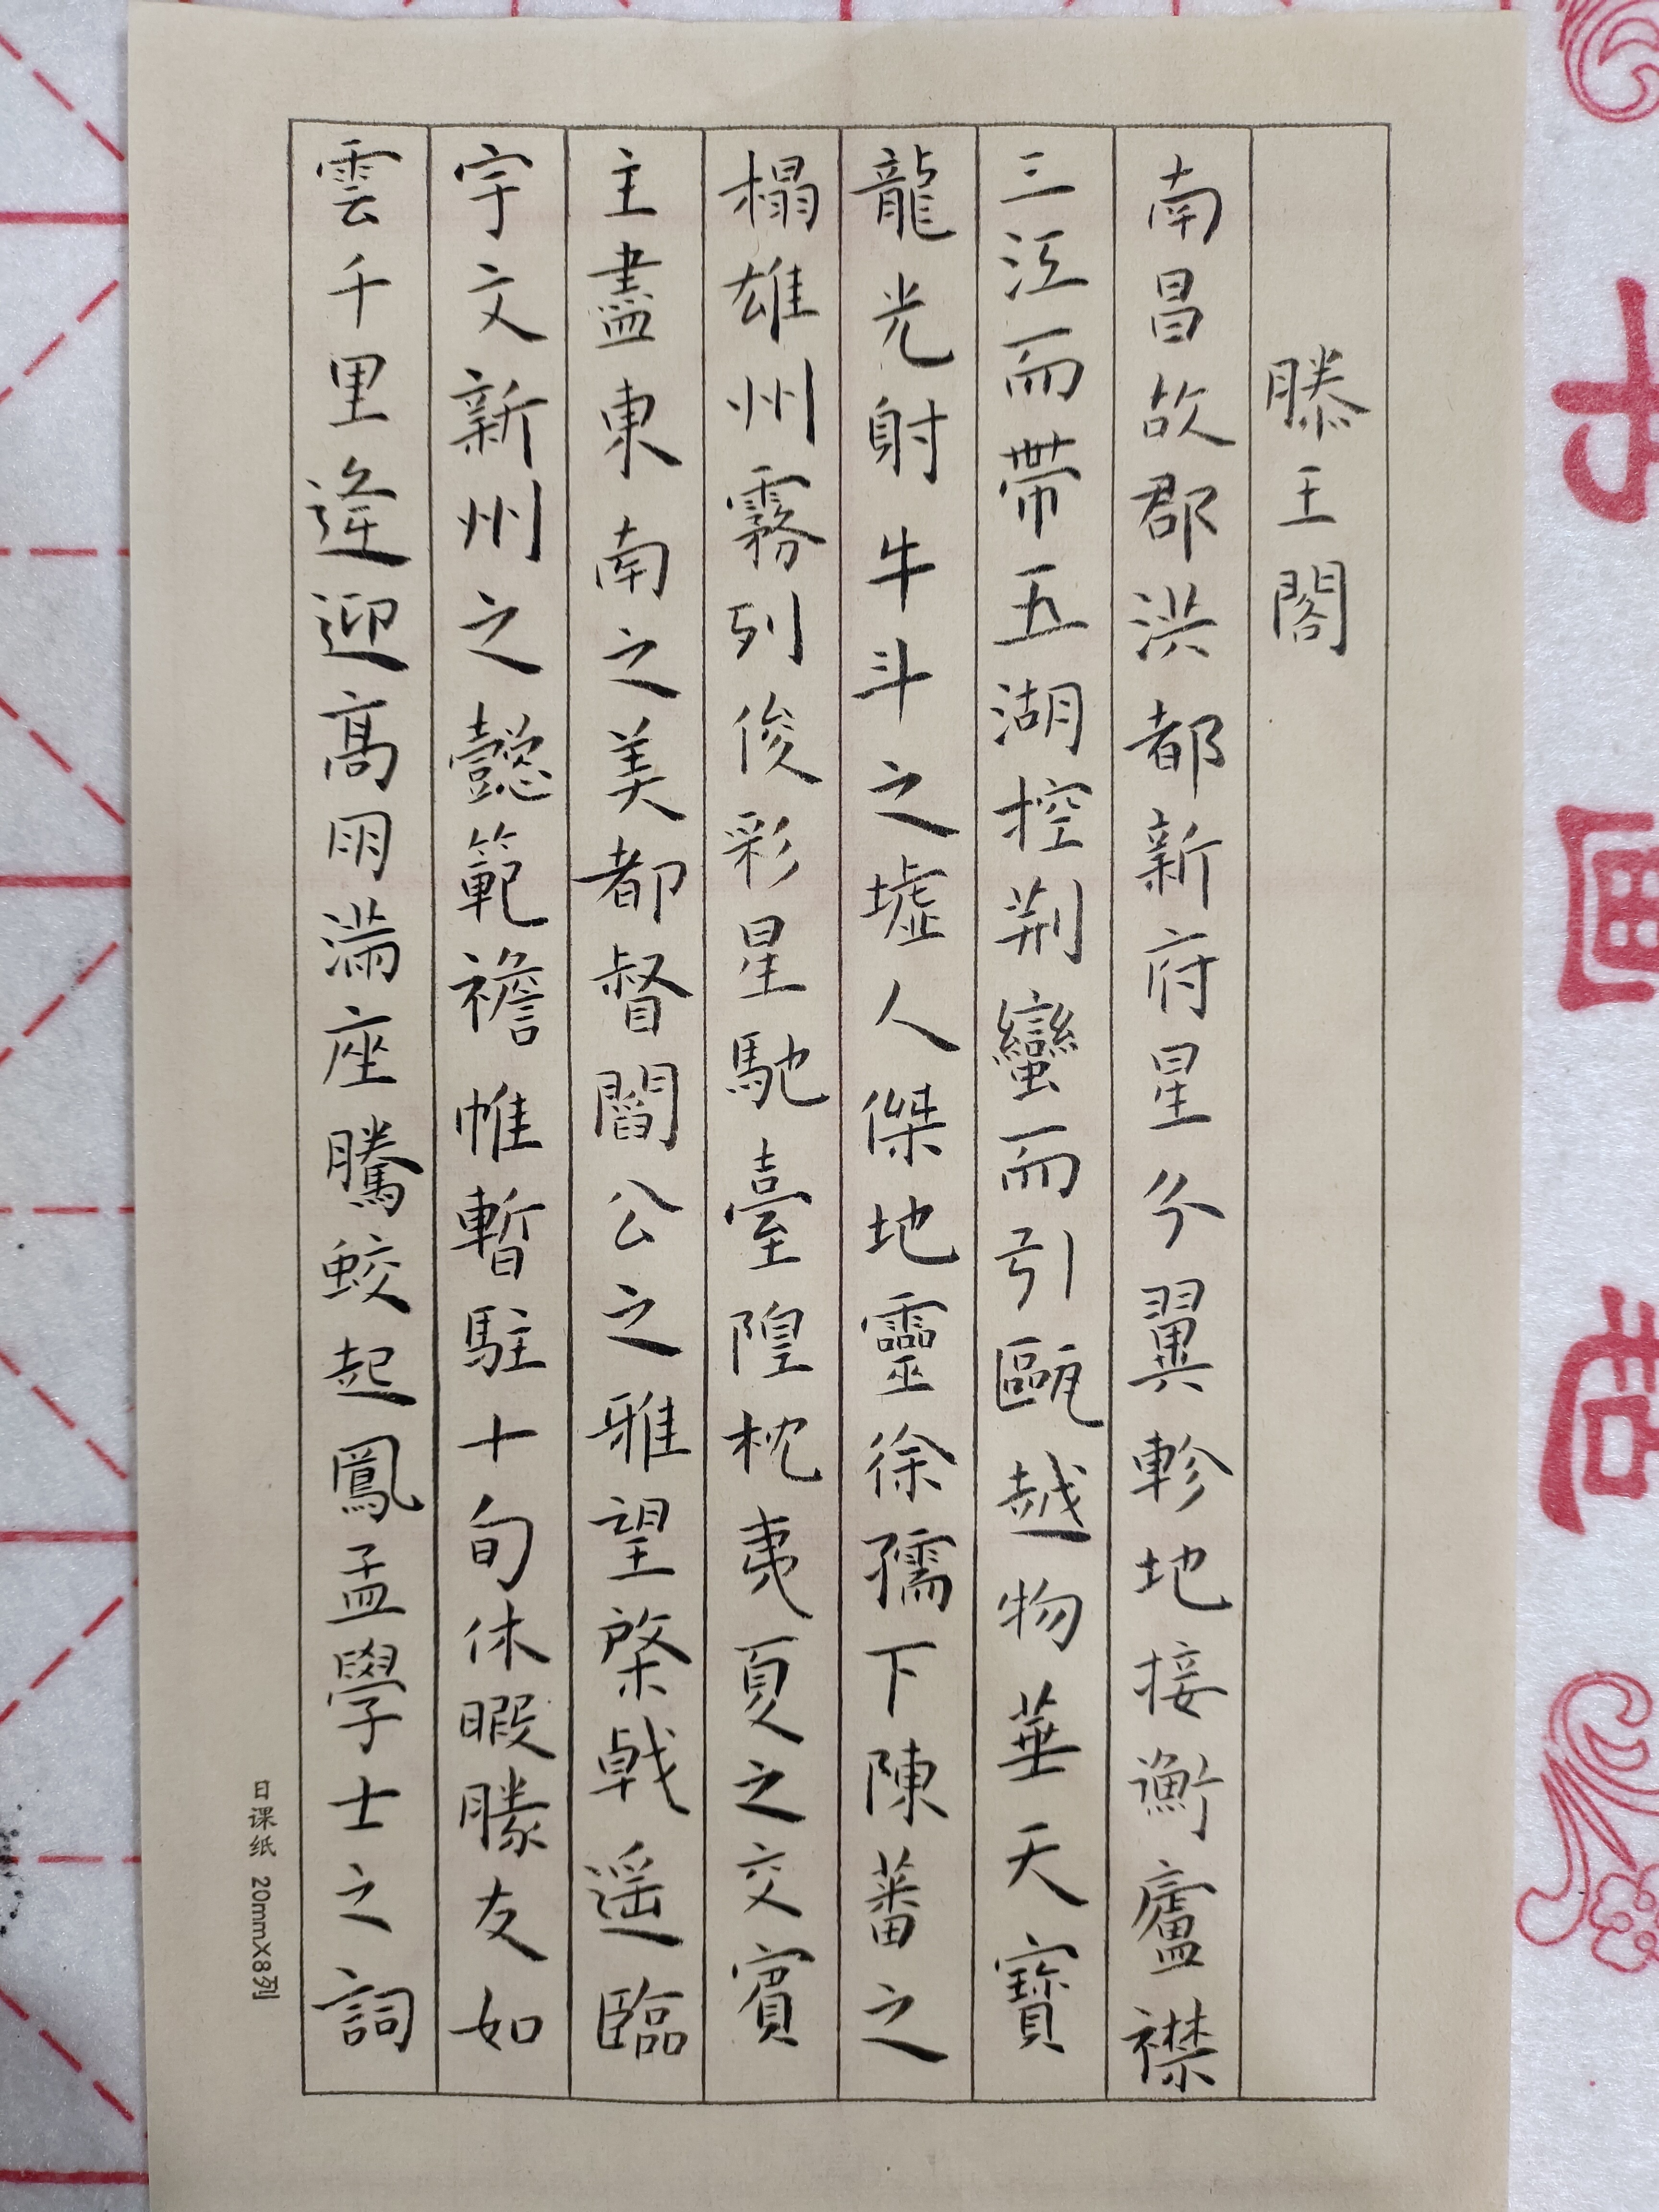 滕王閣
南昌故郡洪都新府星分翼軫地接衡廬襟
三江而帶五湖控荆蠻而引甌越物華天寶
龍光射牛斗之墟人傑地靈徐孺下陳蕃之
榻雄州霧列俊彩星馳臺隍枕夷夏之交賓
主盡東南之美都督閻公之雅望棨戟遥臨
宇文新州之懿範襜帷暫駐十旬休暇勝友如
雲千里逢迎高朋滿座騰蛟起鳳孟學士之詞
日课纸 20mmX8列